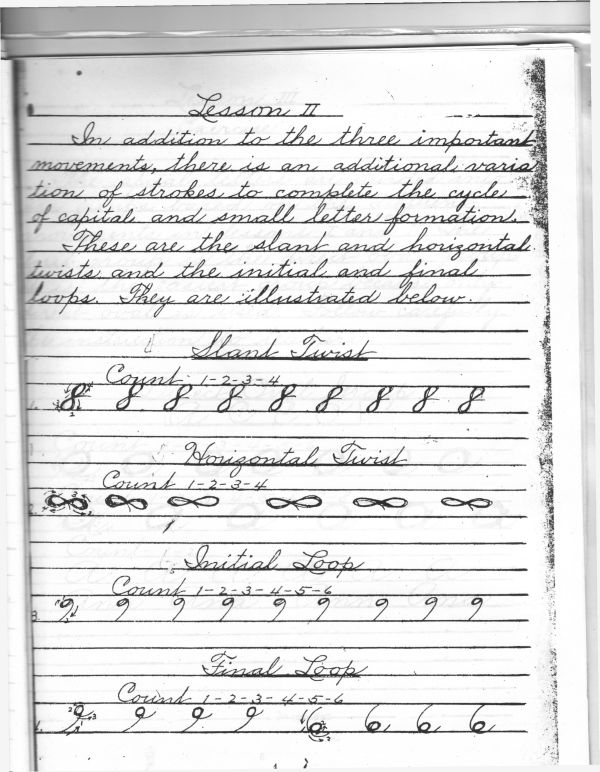 Lesson II
In addition to the three important
movements, there is an additional varia
tion of strokes to complete the cycle
of capital and small letter formation.
These are the slant and horizontal
twists and the initial and final
loops. They are illustrated below.
Slant Twist
Count 1-2-3-4
1. 8 8 8 8 8 8 8 8 8
Horizontal Twist
Count 1-2-3-4
2. ∞ ∞ ∞ ∞ ∞ ∞
Initial Loop
Count 1-2-3-4-5-6
3. 9 9 9 9 9 9 9 9 9
Final Loop
Count 1-2-3-4-5-6
4. 9 9 9 9 6 6 6 6